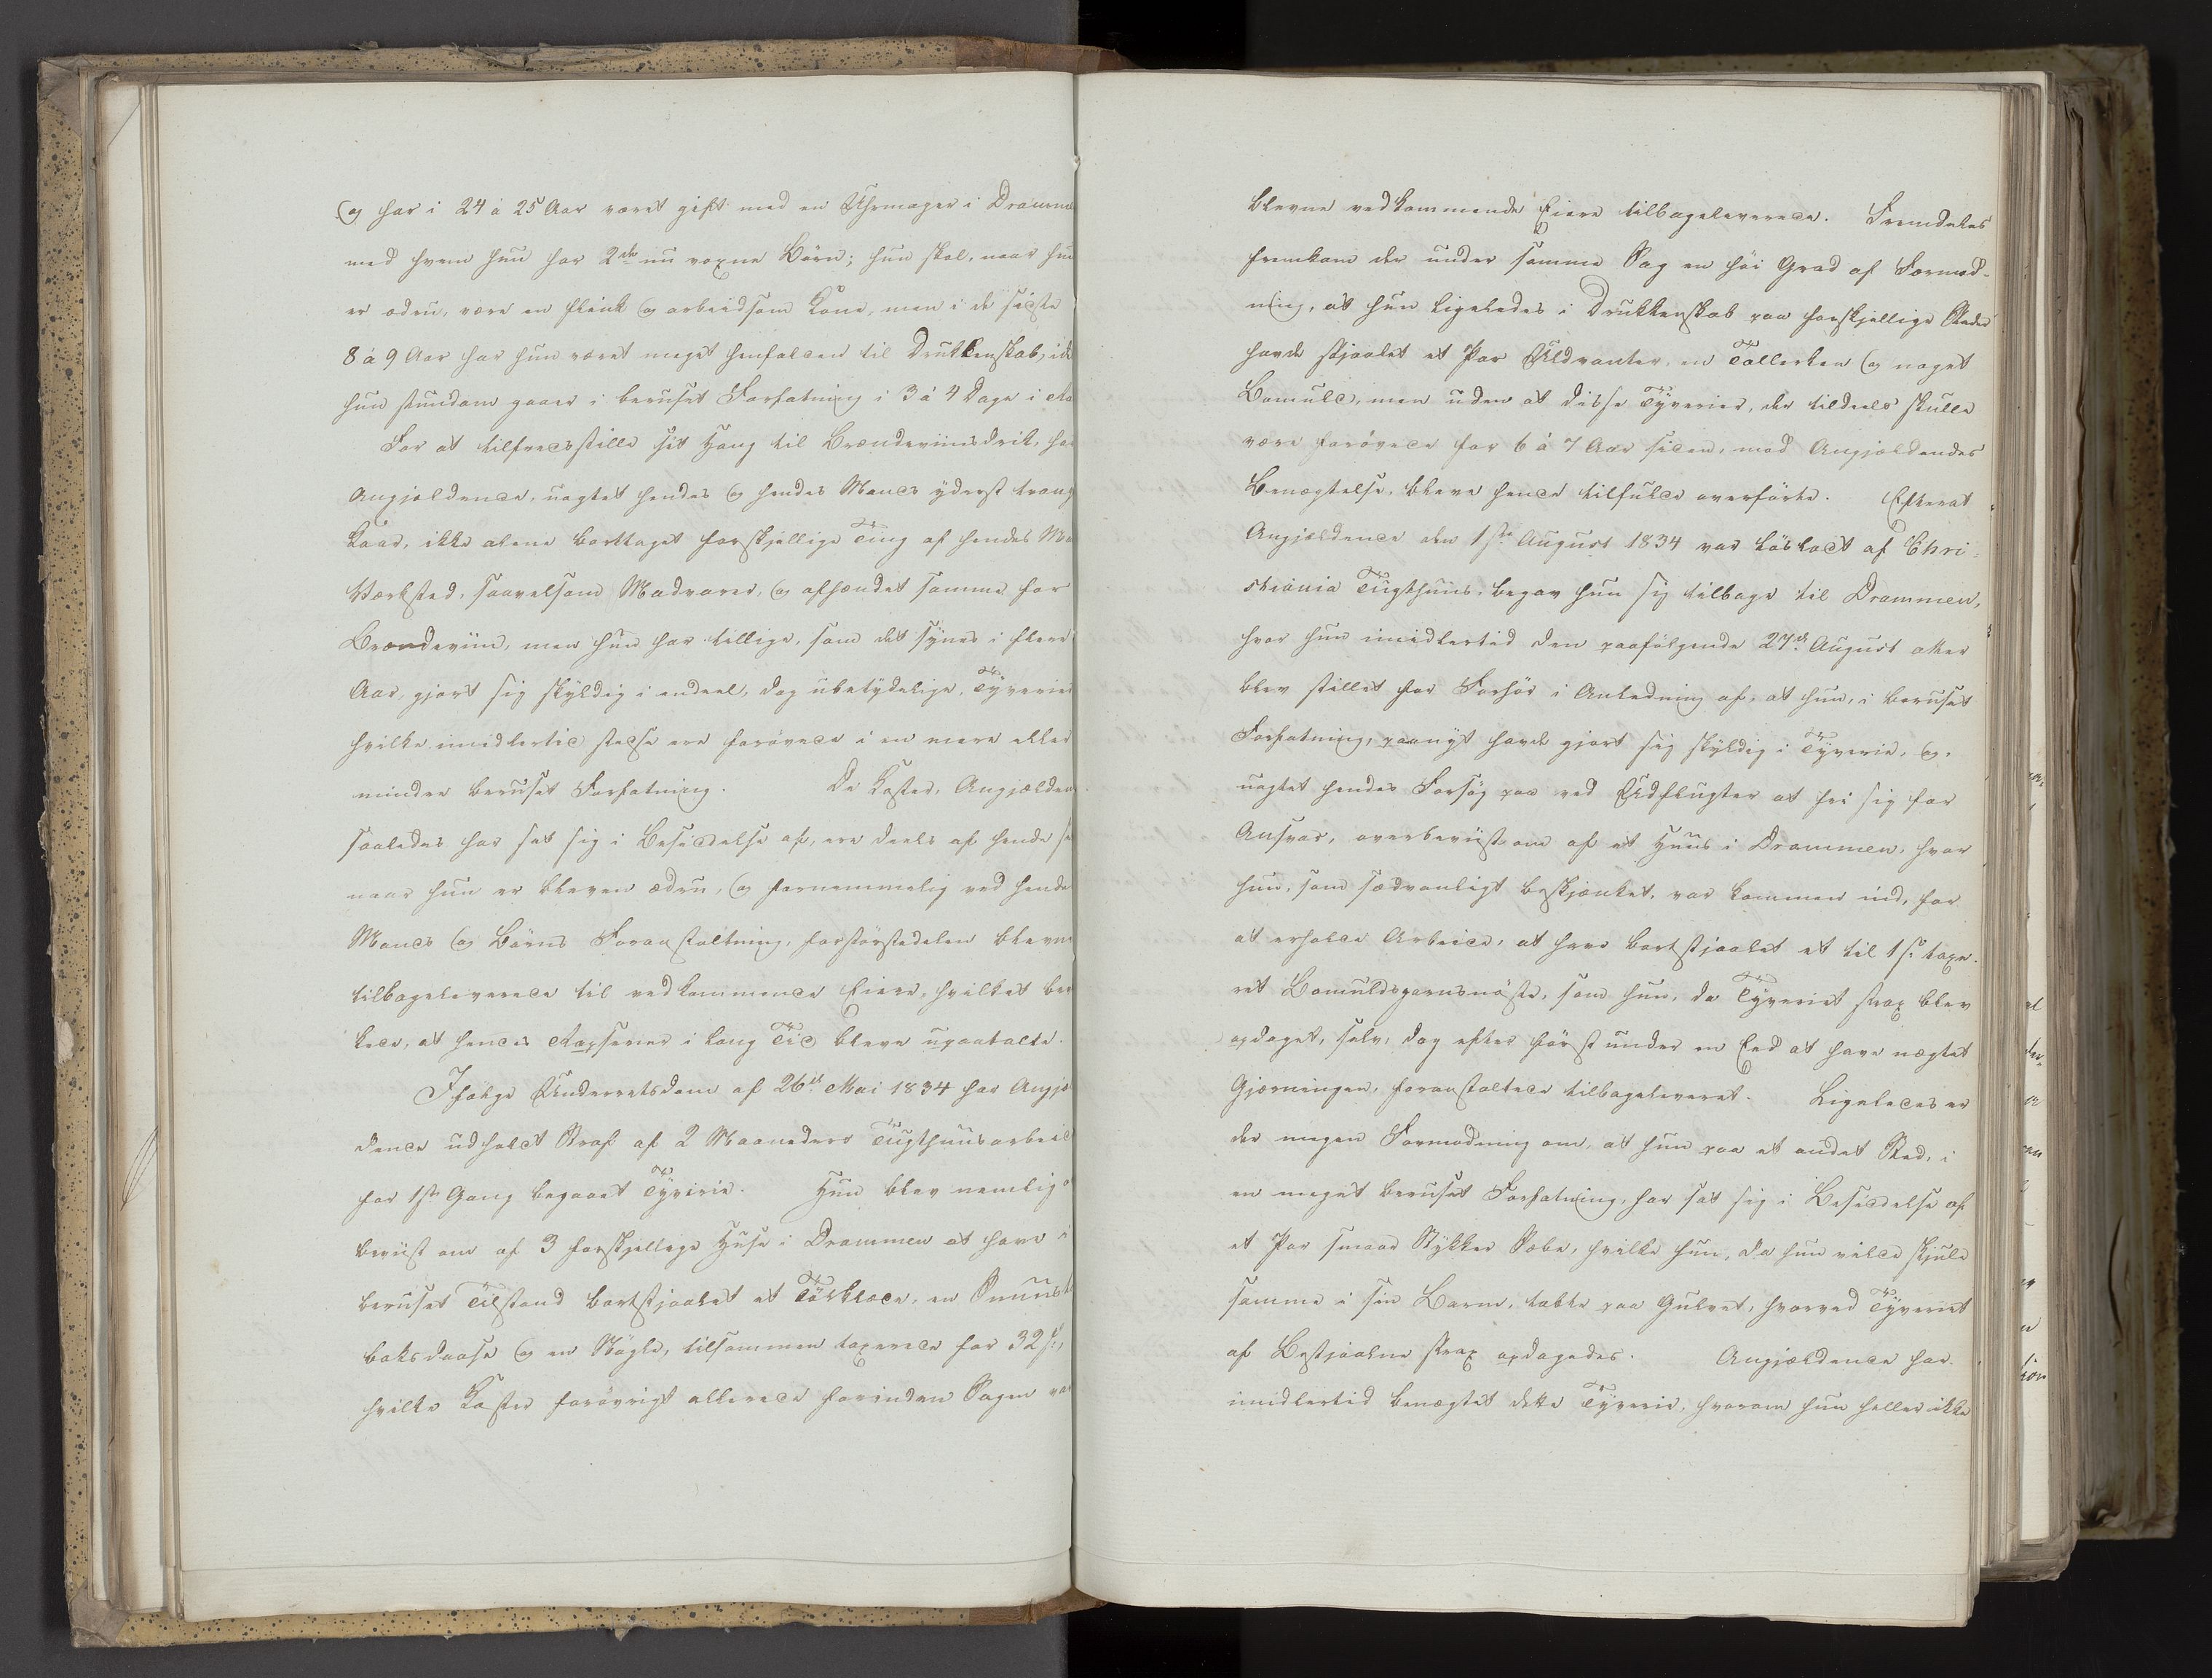 og har i 24 à 25 Aar været gift med en Uhrmager i Dramme
med hvem hun har 2de nu voxne Börn; hun skal, naar hun
er ædru, være en flink og arbeidsom Kone, men i de sidste
8 à 9 Aar har hun været meget henfalden til Drukkenskab, ide
hun stundom gaaer i beruset Forfatning i 3 à 4 Dage i
For at tilfredsstille sit Hang til Brændeviinsdrik, ha
Angjældende, uagtet hendes og hendes Mands yderst trang
Kaar, ikke alene borttaget forskjellige Ting af hendes Ma
Værksted, saavelsom Madvarer, og afhændet samme for
Brændeviin, men hun har tillige, som det synes i flere
Aar, gjort sig skyldig i endeel, dog ubetydelige, Tyverier
hvilke imidlertid stedse ere forövede i en mere eller
mindre beruset Forfatning. De Koster, Angjælden
saaledes har sat sig i Besiddelse af, ere deels af hende se
naar hun er bleven ædru, og fornemmelig ved hende
Mands og Börns Foranstaltning, forstörstedelen blevne
tilbageleverede til vedkommende Eiere, hvilket be
kede, at hendes Rapserier i lang Tid bleve upaatalte.
Ifölge Underretsdom af 26de Mai 1834 har Angjæ
dende udholdt Straf af 2 Maaneders Tugthuusarbeid
for 1ste Gang begaaet Tyverie. Hun blev nemlig o
beviist om af 3 forskjellige Huse i Drammen at have i
beruset Tilstand bortstjaalet et Törklæde, en Snuust
baksdaase og en Nögle, tilsammen taxerede for 32 s,
hvilke Koster forövrigt allerede forinden Sagen var
blevne vedkommende Eiere tilbageleverede. Fremdeles
fremkom der under samme Sag en höi Grad af Formod-
ning, at hun ligeledes i Drukkenskab paa forskjellige Steder
havde stjaalet et Par Uldvanter, en Tallerken og noget
Bomuld, men uden at disse Tyverier, der tildeels skulle
være forövede for 6 à 7 Aar siden, mod Angjældendes
Benægtelse, bleve hende tilfulde overförte. Efterat
Angjældende den 1ste August 1834 var lösladt af Chri-
stiania Tugthuus, begav hun sig tilbage til Drammen,
hvor hun imidlertid den paafölgende 27de August atter
blev stillet for Forhör i Anledning af, at hun, i beruset
Forfatning, paanyt havde gjort sig skyldig i Tyverie, og,
uagtet hendes Forsög paa ved Udflugter at fri sig for
Ansvar, overbeviist om af et Huus i Drammen, hvor
hun, som sædvanligt beskjænket, var kommen ind, for
at erholde Arbeide, at have bortstjaalet et til 1 s. taxe-
ret Bomuldsgarnsnöste, som hun, da Tyveriet strax blev
opdaget, selv, dog efter först under en Eed at have nægtet
Gjerningen, foranstaltede tilbageleveret. Ligeledes er
der megen Formodning om, at hun paa et andet Sted, i
en meget beruset Forfatning, har sat sig i Besiddelse af
et Par smaae Stykker Sæbe, hvilke hun, da hun vilde skjule
samme i sin Barm, tabte paa Gulvet, hvorved Tyveriet
af Bestjaalne strax opdagedes. Angjældende har
imidlertid benægtet dette Tyverie, hvorom hun heller ikke